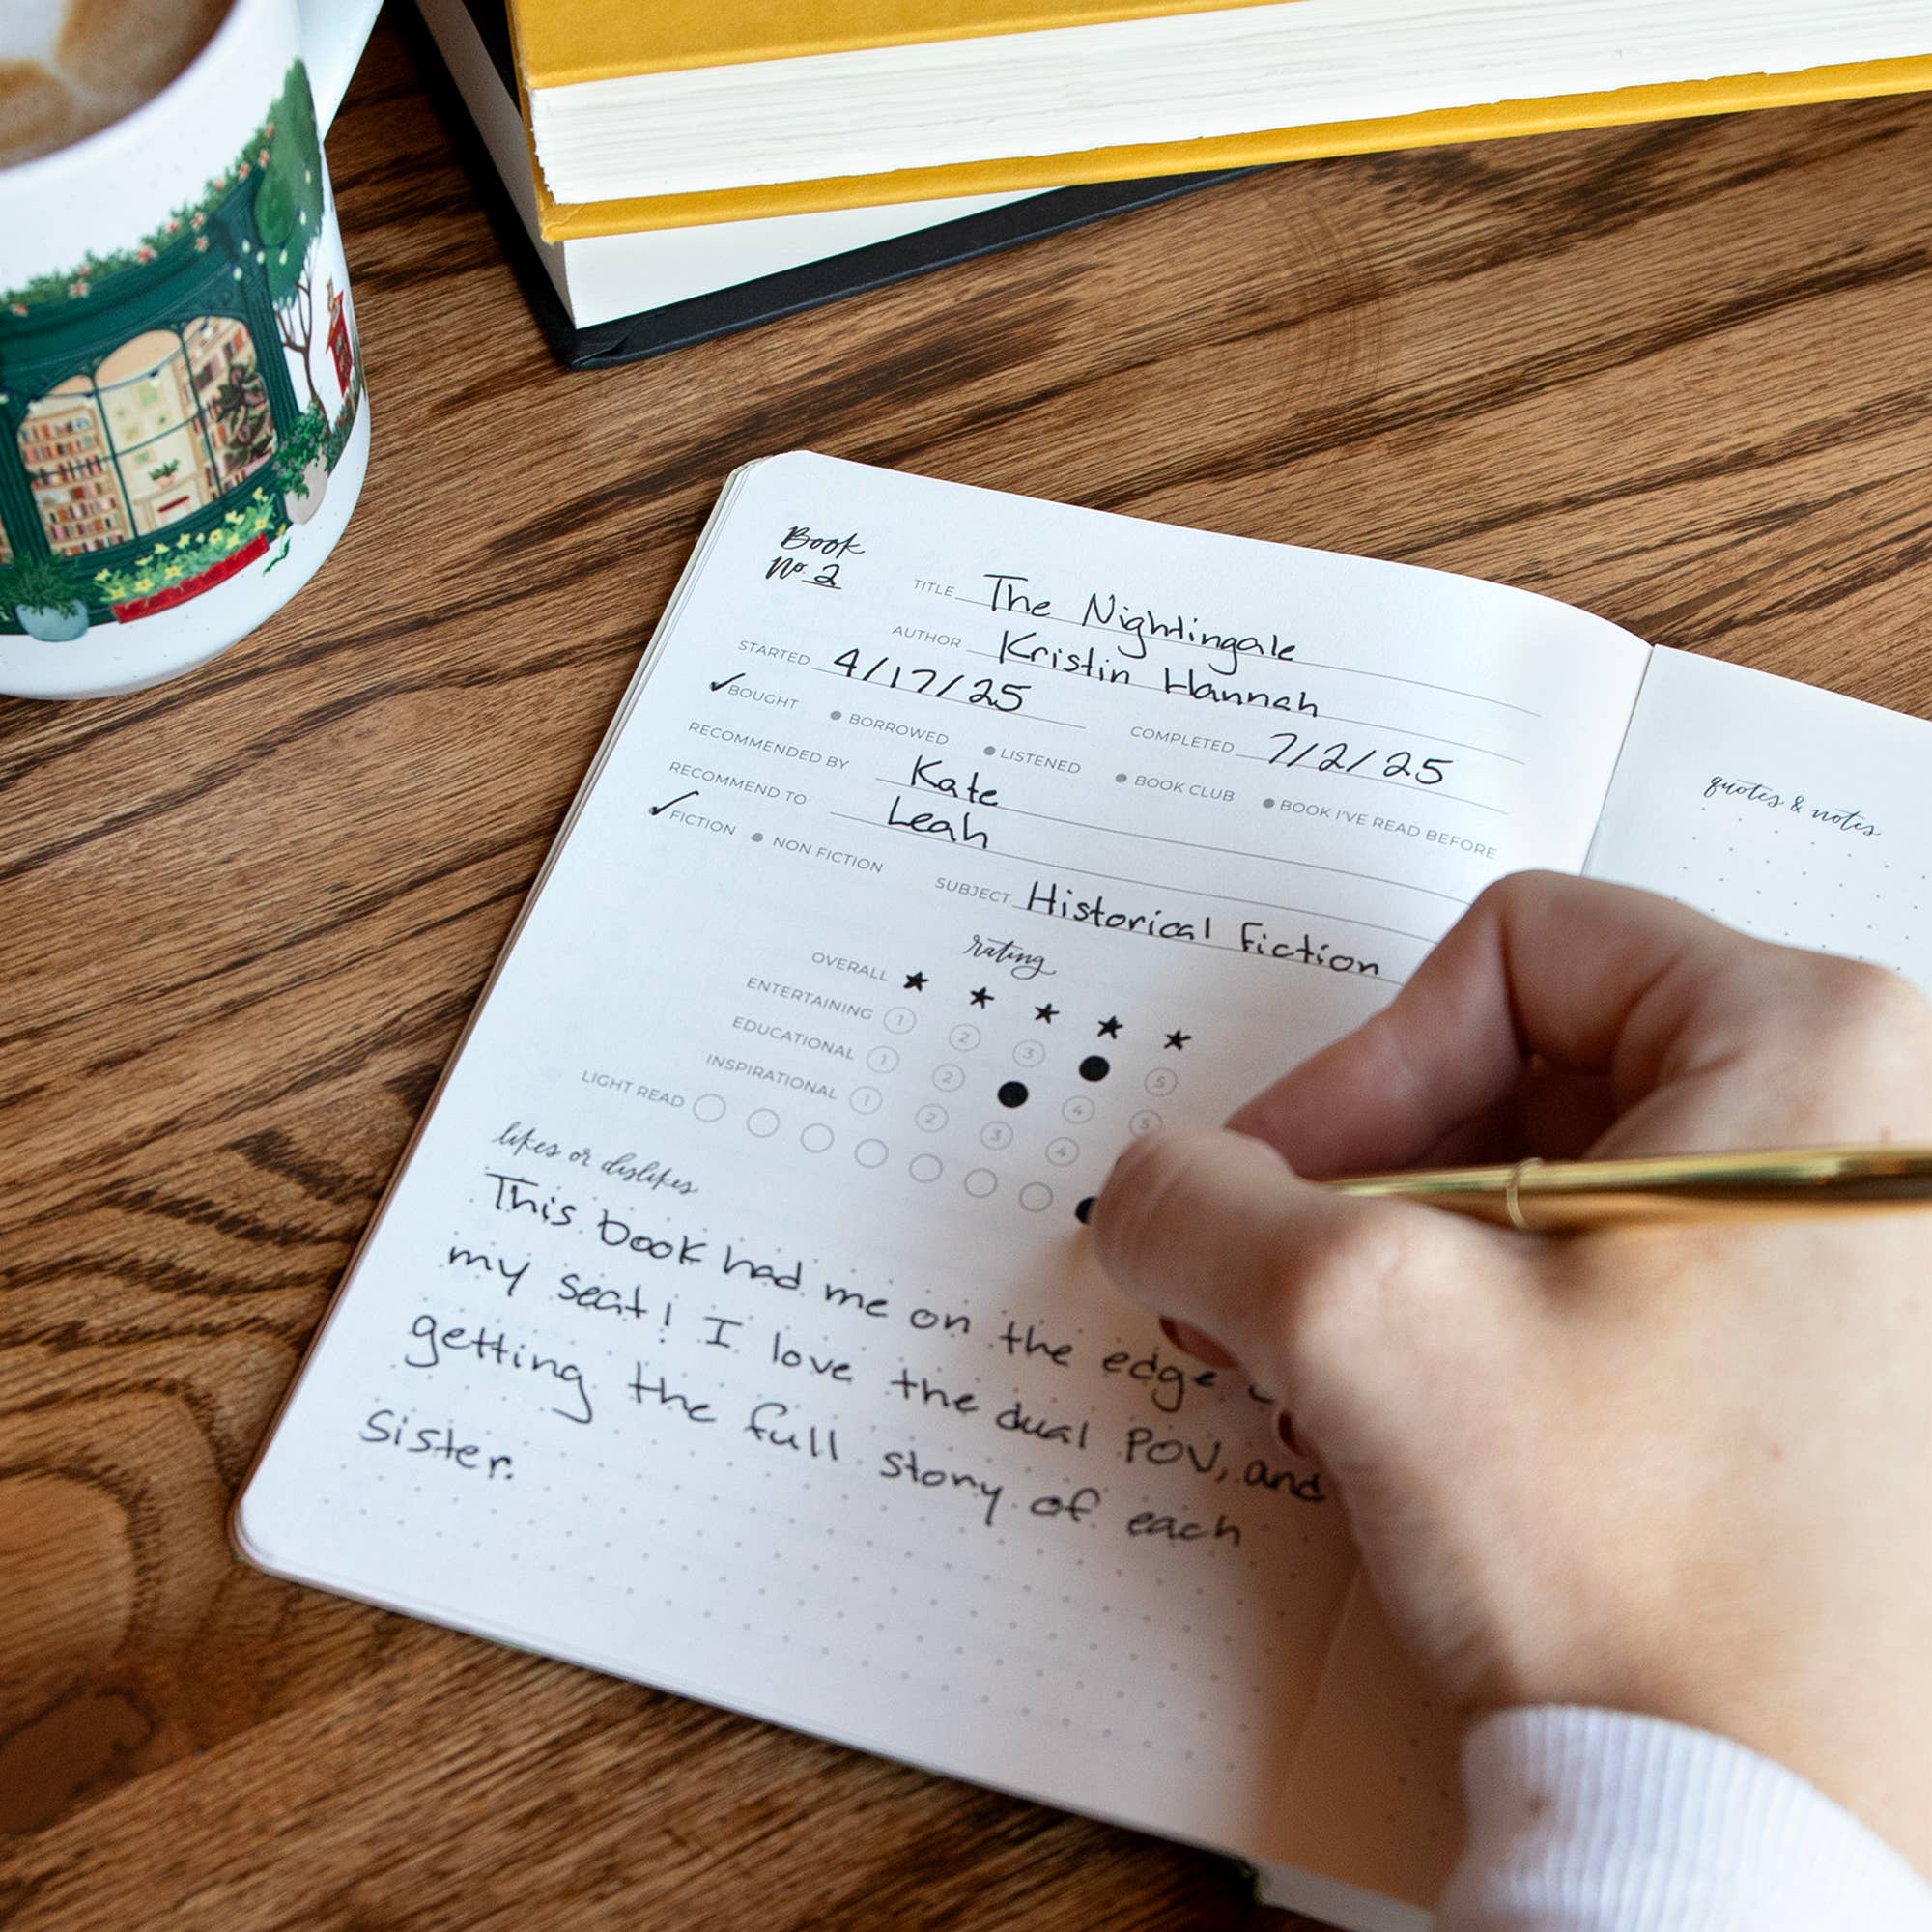 Book
No. 2
TITLE The Nightingale
AUTHOR Kristin Hannah
STARTED 4/17/25 COMPLETED 7/2/25
✓ BOUGHT BORROWED LISTENED BOOK CLUB BOOK I'VE READ BEFORE
RECOMMENDED BY Kate
RECOMMEND TO Leah
✓ FICTION NON FICTION SUBJECT Historical fiction
rating
OVERALL ★ ★ ★ ★ ★
ENTERTAINING 1 2 3 5
EDUCATIONAL 1 2 4 5
INSPIRATIONAL 1 2 3 4
LIGHT READ
likes or dislikes
This book had me on the edge
my seat! I love the dual POV, and
getting the full story of each
sister.
quotes & notes